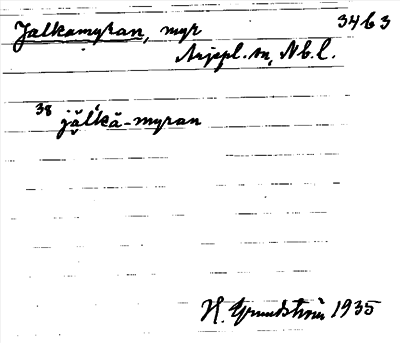 Jalkamyran, myr 3463
Arjepl. sn, Nb. l.
38 jălkā-myran
H. Grundström 1935